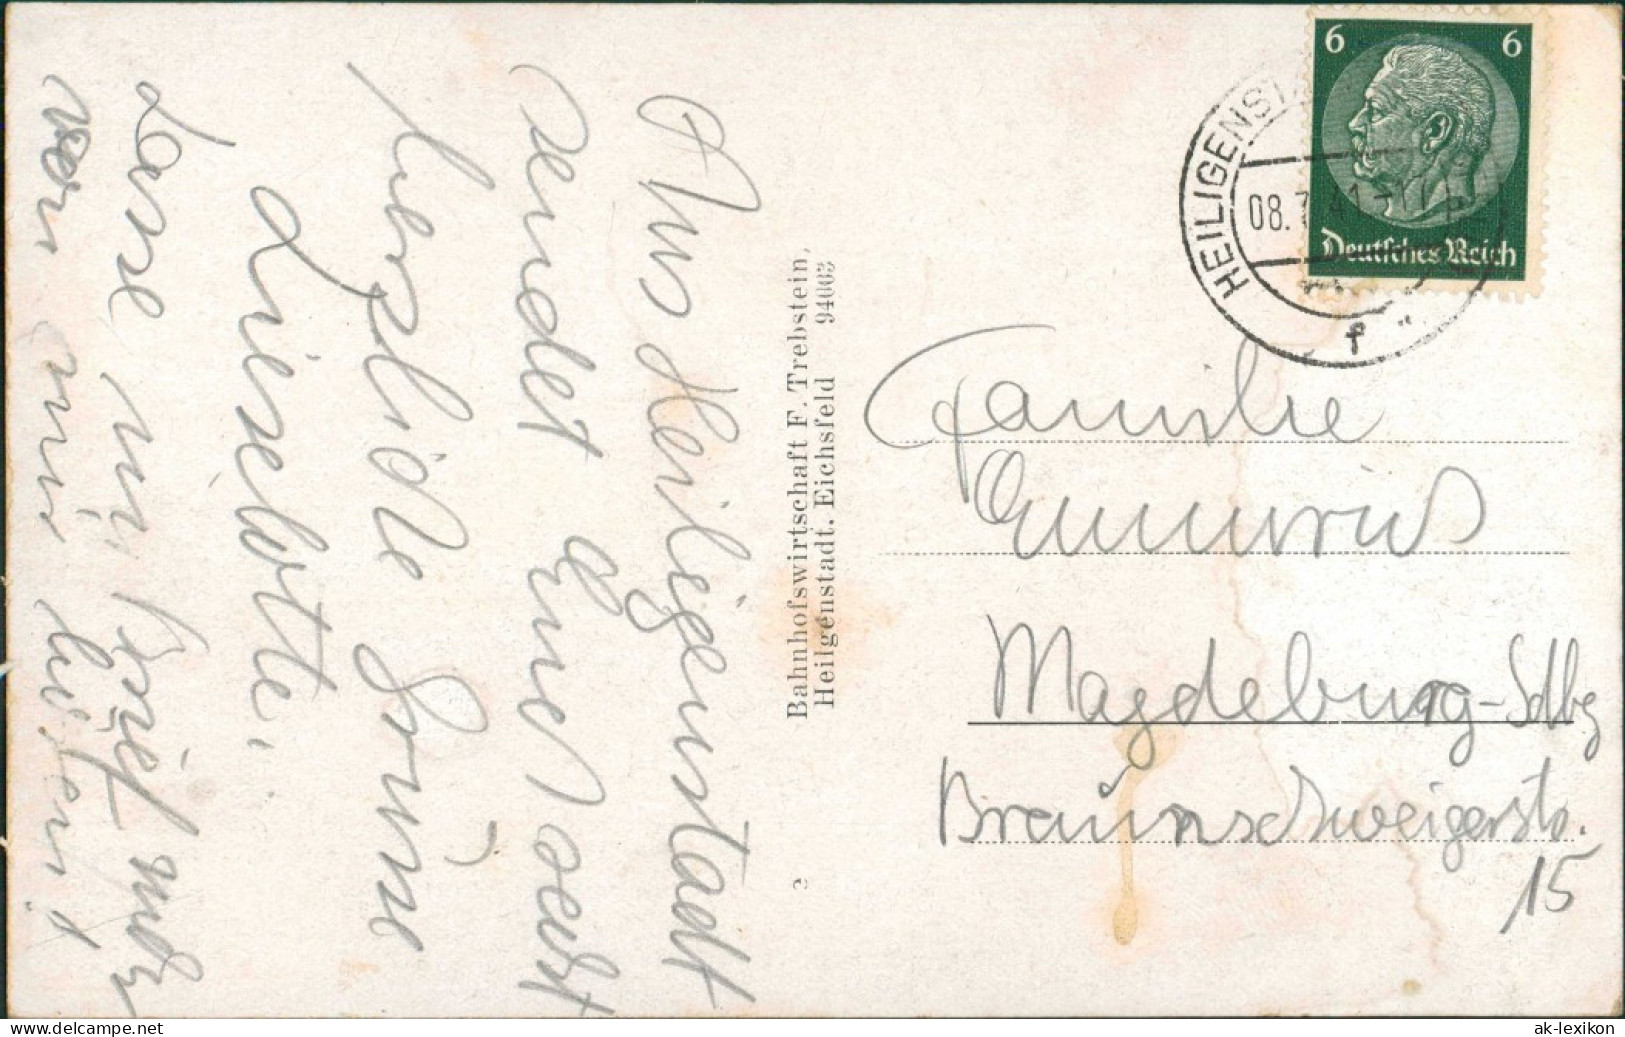 Aus Heiligenstadt
sendet Euch recht
herzliche Grüße
Lieselotte.
Lasse
von mir hören!
Bahnhofswirtschaft F. Trebstein,
Heilgenstadt. Eichsfeld 94003
6 6
Deutsches Reich
HEILIGENST
08.7.41
f
Familie
Magdeburg-Sdbg
Braunschweigerstr.
15
ak-lexikon.de
www.delcampe.net